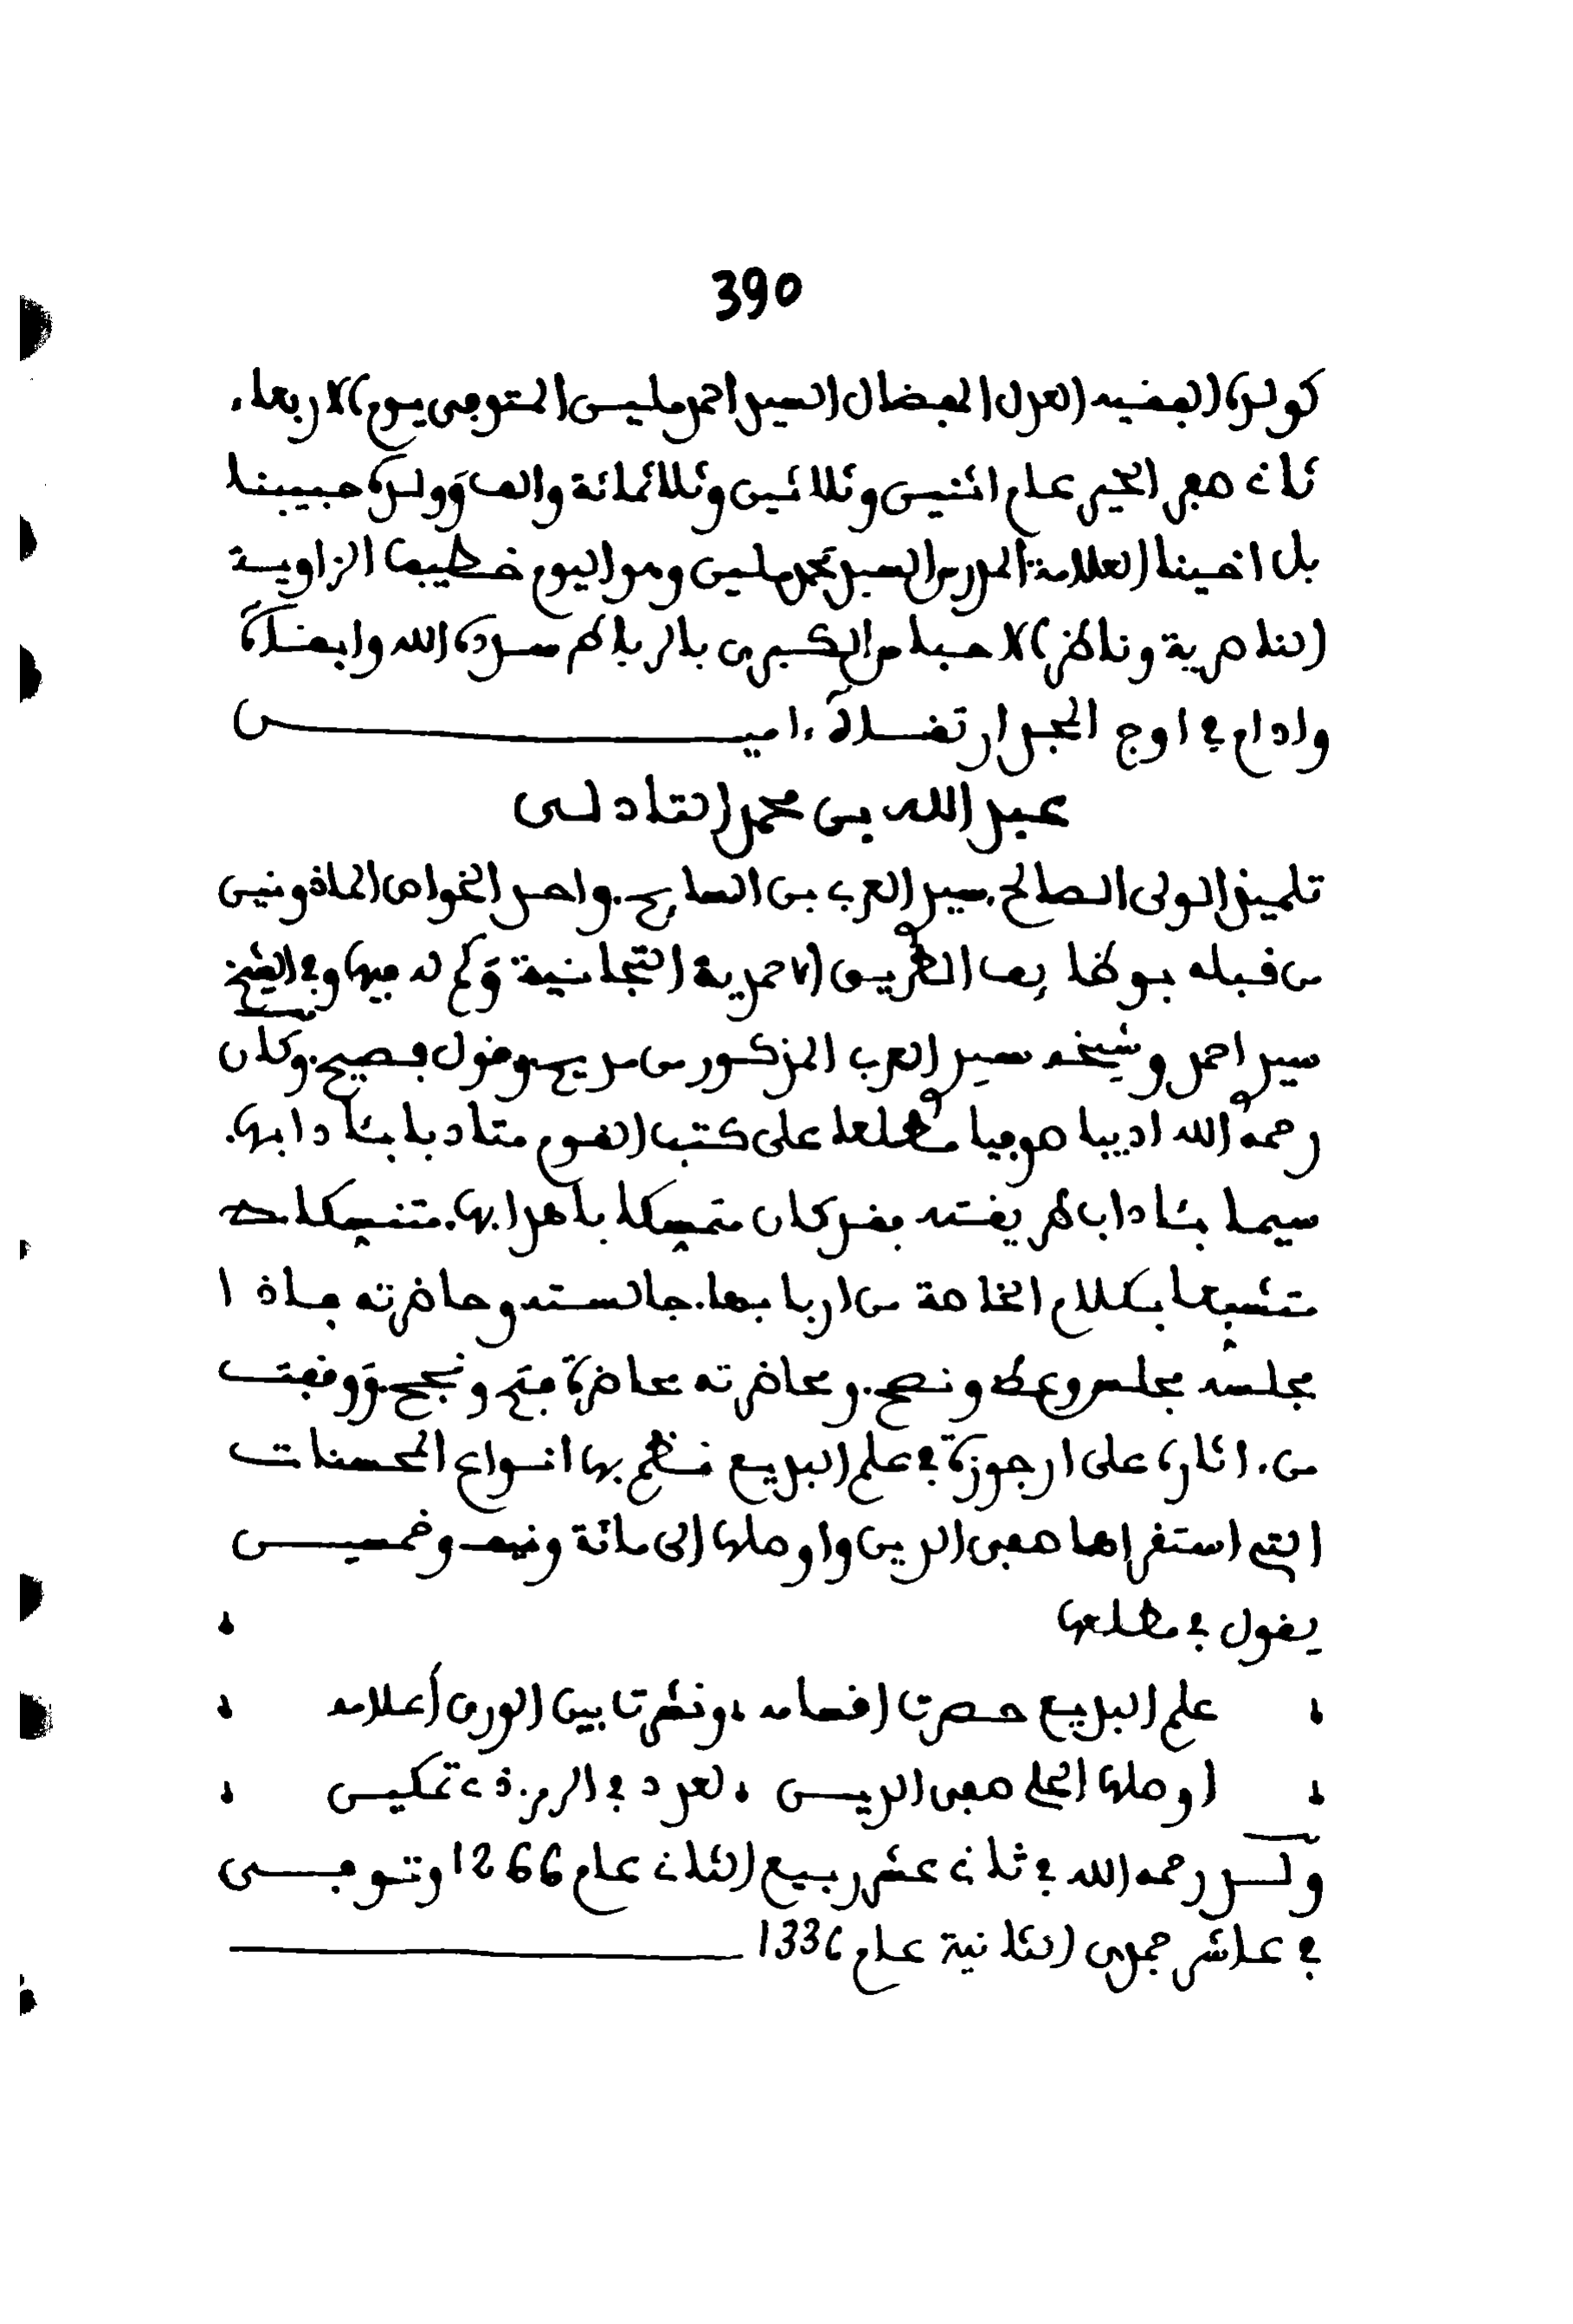 390
كولده الفقيه العدل المفضال السيد احمد ملين المتوفى يوم الاربعاء
ثاني صفر الخير عام اثنين وثلاثين وثلاثمائة والف وولده حبيبنا
بل اخينا العلامة المدرس السيد محمد ملين وهو اليوم خطيب الزاوية
الناصرية وناظر الاحباس الكبرى بالرباط سدده الله وابقاه
وادام في اوج المجد ارتقاه ءامين
عبد الله بن محمد التادلي
تلميذ الولي الصالح سيد العرب بن السايح. واحد الخواص الماذونين
من قبله بوظايف الطريق الاحمدية التجانية وكم له فيها وفي الشيخ
سيد احمد وشيخه سيد العرب المذكور من مديح وقول فصيح. وكان
رحمه الله اديبا صوفيا مطلعا على كتب القوم متادبا بئادابها.
سيما بئاداب طريقته فقد كان متمسكا باهدابها. متنسكا
متشبعا بكلام الخاصة من اربابها. جالسته وحاضرته فاذا
مجلسه مجلس وعظ ونصح. ومحاضرته محاضرة فتح ونجح. ووقفت
من ءاثاره على ارجوزة في علم البديع نظم بها انواع المحسنات
التي استقراها صفي الدين واوصلها الى مائة ونيف وخمسين
يقول في مطلعها
علم البديع حصرت اقسامه ونشرت بين الورى أعلامه
اوصلها الحلي صفي الدين لعدد في الرمز ذي تمكين
ولد رحمه الله في ثاني عشر ربيع الثاني عام 1266 وتوفي
في عاشر جمدى الثانية عام 1336